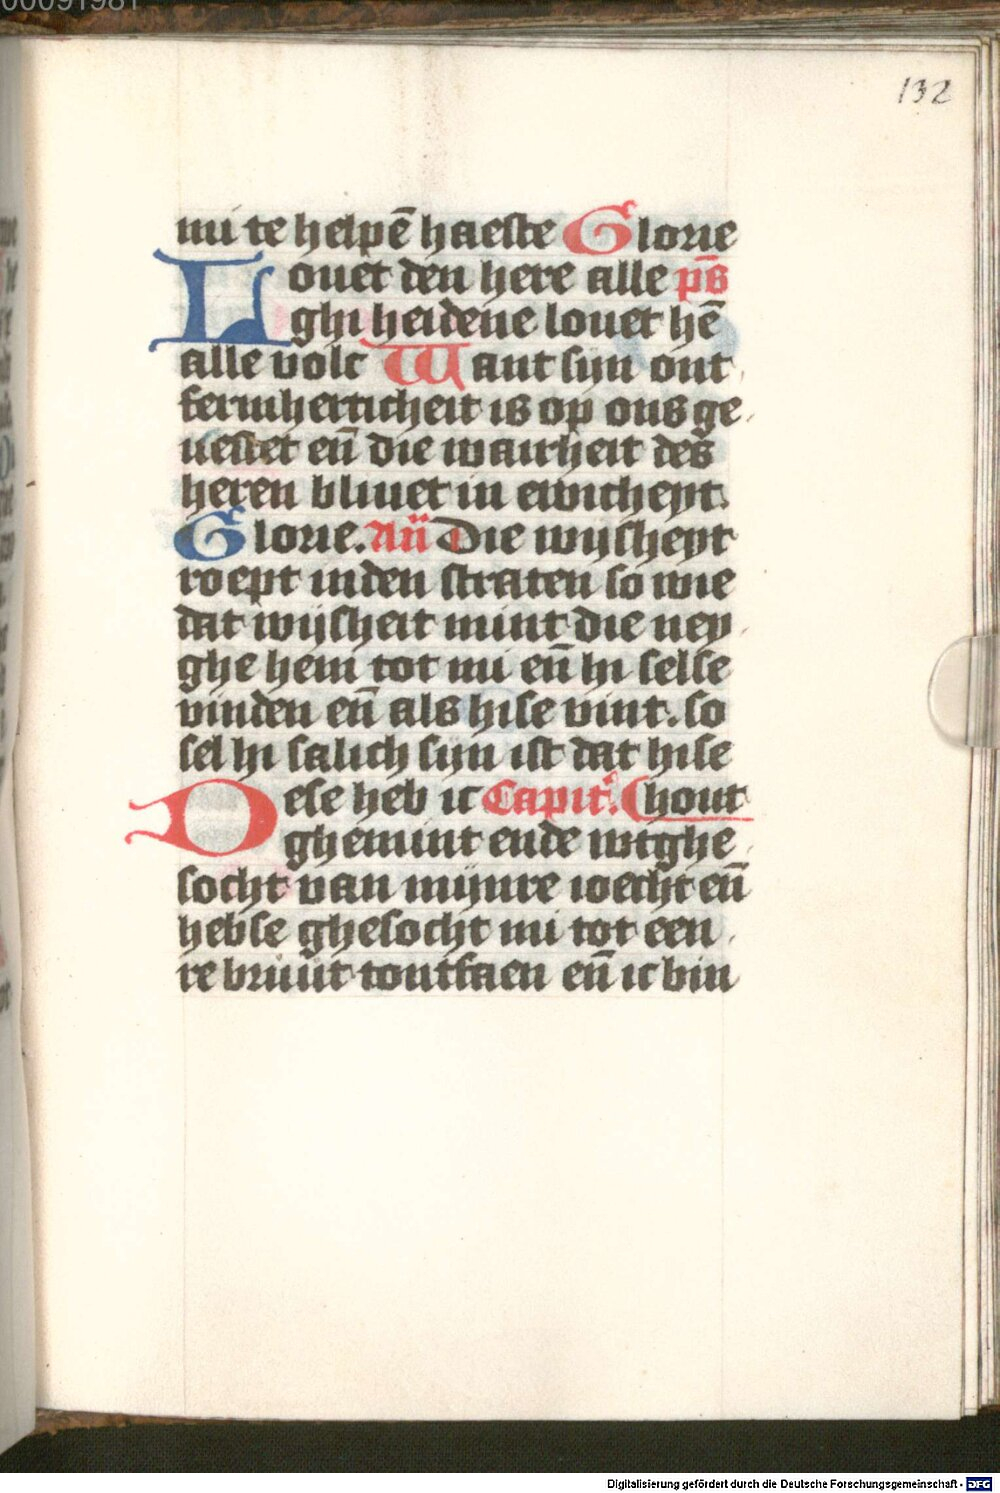 00091981
132
mi te helpē haeste Glorie
Louet den here alle ps̄
ghi heidene louet hē
alle volc Want sijn ont
fermherticheit is op ons ge
uestet eñ die wairheit des
heren bliuet in ewicheyt.
Glorie. Añ Die wijsheyt
roept inden straten so wie
dat wijsheit mint die ney
ghe hem tot mi eñ hi selse
vinden eñ als hise vint. so
sel hi salich sijn ist dat hise
Dese heb ic Capit̄. (hout
ghemint ende wtghe
socht van mijnre ioecht eñ
hebse ghesocht mi tot een
re bruut tontfaen eñ ic bin
Digitalisierung gefördert durch die Deutsche Forschungsgemeinschaft - DFG